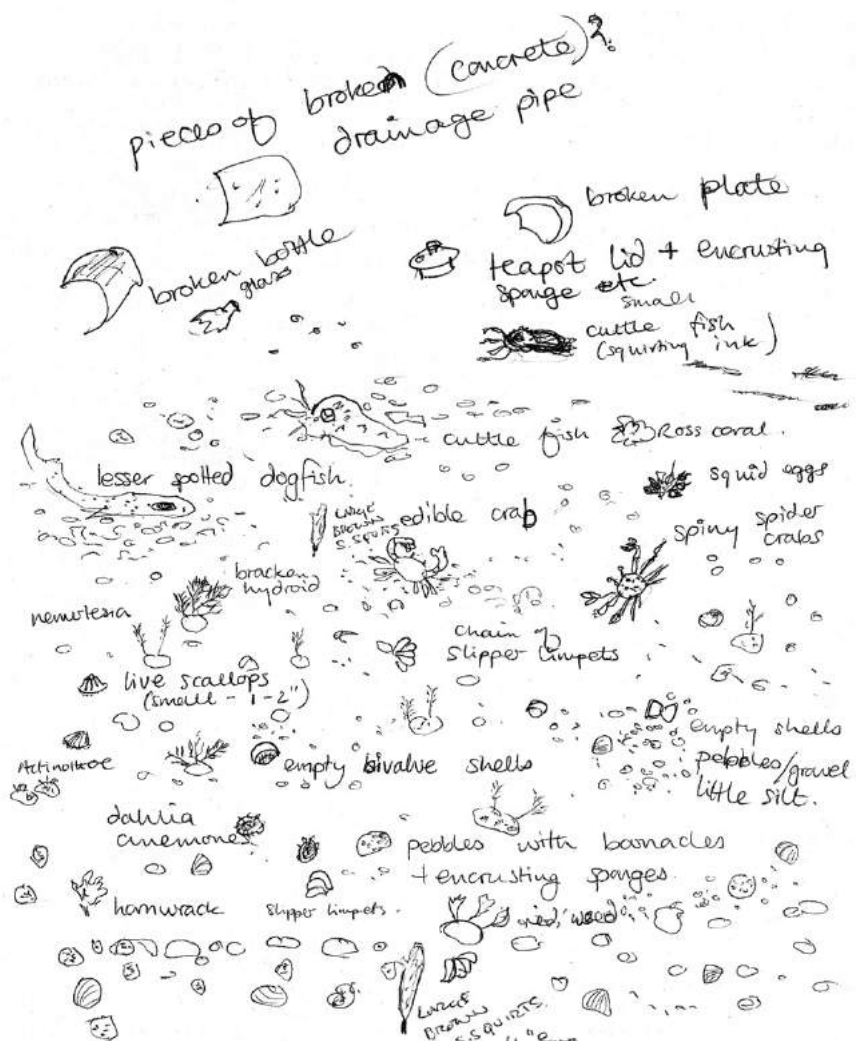 pieces of broken (concrete)?
drainage pipe
broken plate
broken bottle
glass
teapot lid + encrusting
sponge etc.
small
cuttle fish
(squirting ink)
cuttle fish
Ross coral.
lesser spotted dogfish.
squid eggs
LARGE
BROWN
S.SQUIRTS
edible crab
spiny spider
crabs
bracken
hydroid
nemertesia
chain of
slipper limpets
live scallops
(small - 1-2")
empty shells
pebbles/gravel
little silt.
Actinothoe
empty bivalve shells
dahlia
anemones
pebbles with barnacles
+ encrusting sponges.
hornwrack
slipper limpets.
red weed
LARGE
BROWN
S.SQUIRTS.